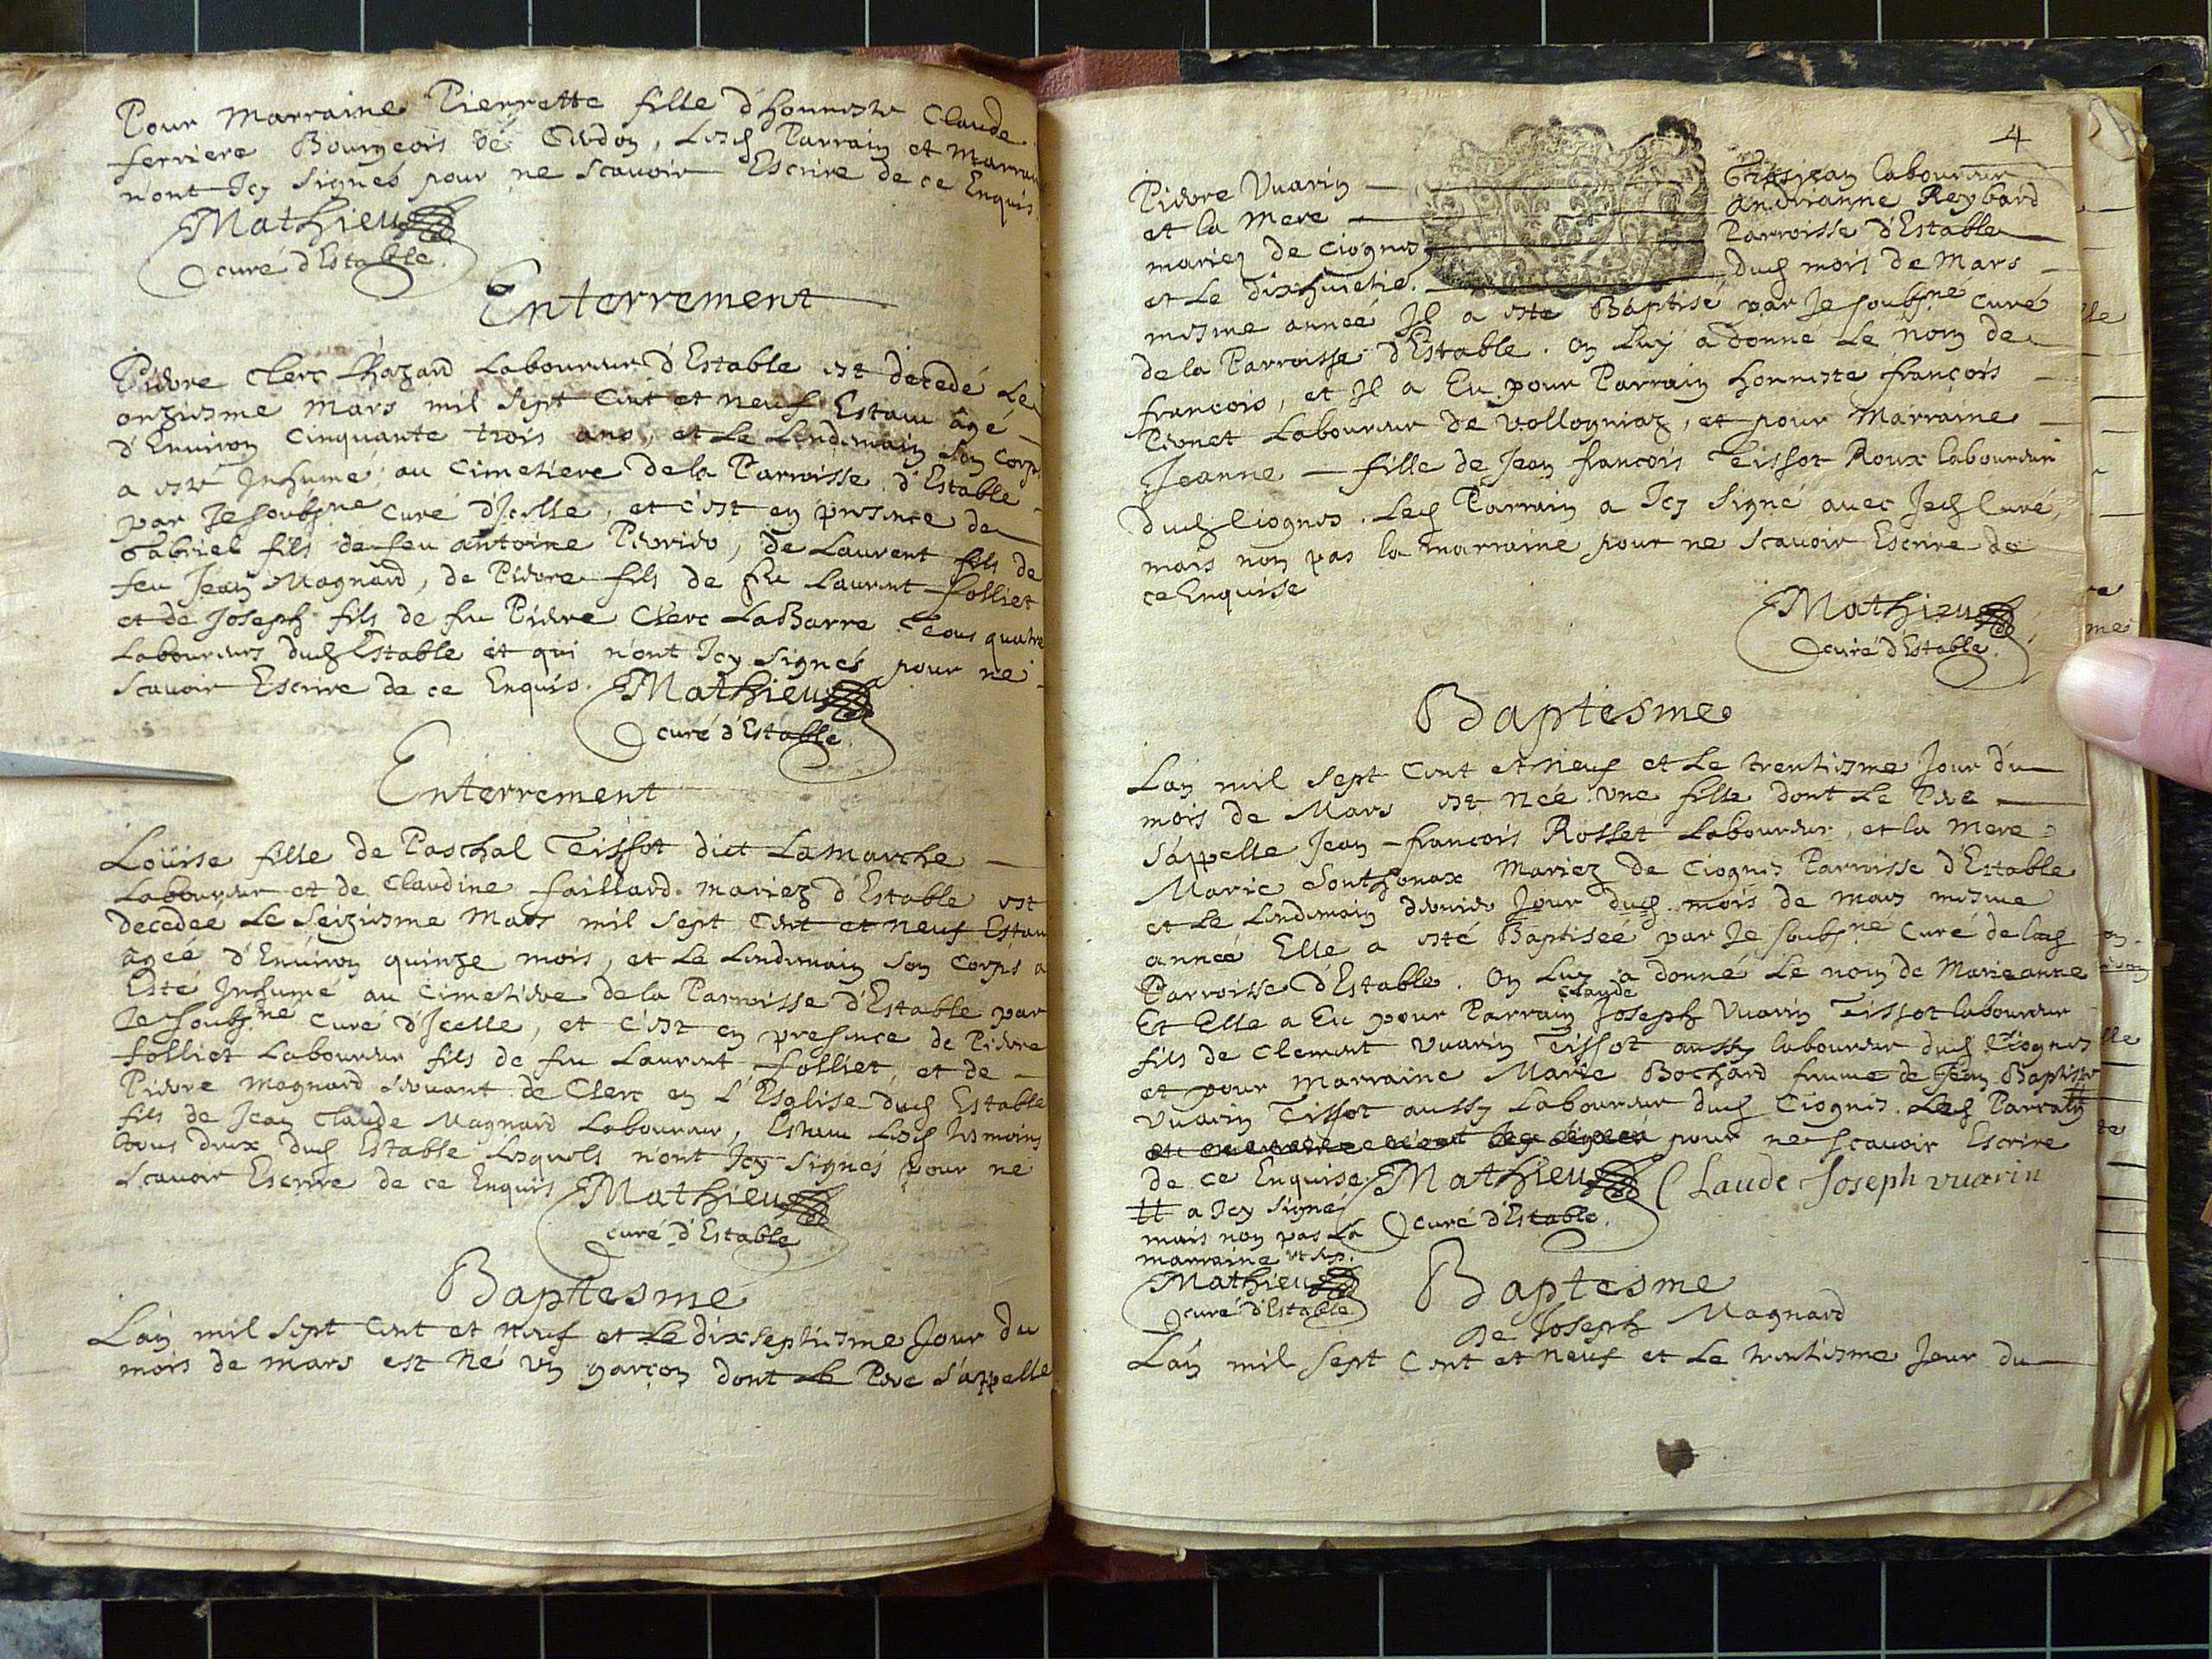 Pour Marraine Pierrette fille d'honneste Claude
ferriere Bourgeois de Cerdon, Lesd Parrain et Marraine
n'ont Icy signés pour ne scavoir Escrire de ce Enquis.
Mathieu
curé d'Estable.
Enterrement
Pierre Clerc Chazard Laboureur d'Estable est decedé Le
onziesme Mars mil sept Cent et neuf Estant âgé
d'Environ Cinquante trois ans, et Le Lendemain son Corps
a esté Inhumé au Cimetiere de la Parroisse d'Estable
par Je soubsne Curé d'Jcelle, et c'est en presence de
Gabriel fils de feu antoine Perrier, de Laurent fils de
feu Jean Magnard, de Pierre fils de feu Laurent folliet
et de Joseph fils de feu Pierre Clerc LaBarre Tous quatre
Laboureurs dud Estable et qui n'ont Icy signés pour ne
scavoir Escrire de ce Enquis. Mathieu
curé d'Estable.
Enterrement
Loüise fille de Paschal Teissot dict Lamarche
Laboureur et de Claudine faillard mariez d'Estable est
decedée Le seiziesme Mars mil sept Cent et neuf Estant
âgeé d'Environ quinze mois, et Le Lendemain son Corps a
Esté Inhumé au Cimetiere de la Parroisse d'Estable par
Je soubsne Curé d'Jcelle, et c'est en presence de Pierre
folliet Laboureur fils de feu Laurent folliet, et de
Pierre Magnard servant de Clerc en L'Esglise dud Estable
fils de Jean Claude Magnard Laboureur, Estant Lesd tesmoins
tous deux dud Estable Lesquels n'ont Icy signés pour ne
scavoir Escrire de ce Enquis Mathieu
curé d'Estable
Baptesme
Lan mil sept Cent et neuf et Le dixseptiesme Jour du
mois de mars est Né un garçon dont Le Pere s'appelle
4
Pierre Vuarin Laboureur
et la Mere Andrianne Reybard
mariez de Ciognes Parroisse d'Estable
et Le dixhuictie. dud mois de Mars
mesme anneé Il a esté Baptisé par Je soubsne Curé
de la Parroisse d'Estable. On Luy a donné Le nom de
francois, et Il a Eu pour Parrain honneste françois
Pernet Laboureur de Vollogniaz, et pour Marraine
Jeanne fille de Jean francois Teissot Roux laboureur
dud Ciognes. Led Parrain a Icy signé avec Jed Curé,
mais non pas la marraine pour ne scavoir Escrire de
ce Enquise
Mathieu
curé d'Estable.
Baptesme
Lan mil sept Cent et neuf et Le trentiesme Jour du
mois de Mars est Née une fille dont Le Pere
s'appelle Jean-francois Rosset Laboureur, et la Mere
Marie Sonthonax Mariez de Ciognes Parroisse d'Estable
et Le Lendemain dernier Jour dud mois de mars mesme
anneé Elle a esté Baptiseé par Je soubsné Curé de lad
Parroisse d'Estable. On Luy a donné Le nom de Marieanne
Et Elle a Eu pour Parrain Claude Joseph Vuarin Teissot laboureur
fils de Clement Vuarin Teissot aussy laboureur dud Ciognes
et pour Marraine Marie Bochard femme de Jean Baptiste
Vuarin Tissot aussy Laboureur dud Ciognes. Led Parrain #
pour ne scavoir Escrire
de ce Enquise. Mathieu Claude Joseph vuarin
# a Icy signé curé d'Estable.
mais non pas La
marraine
Mathieu
curé d'Estable
Baptesme
de Joseph Magnard
Lan mil sept Cent et neuf et Le trentiesme Jour du